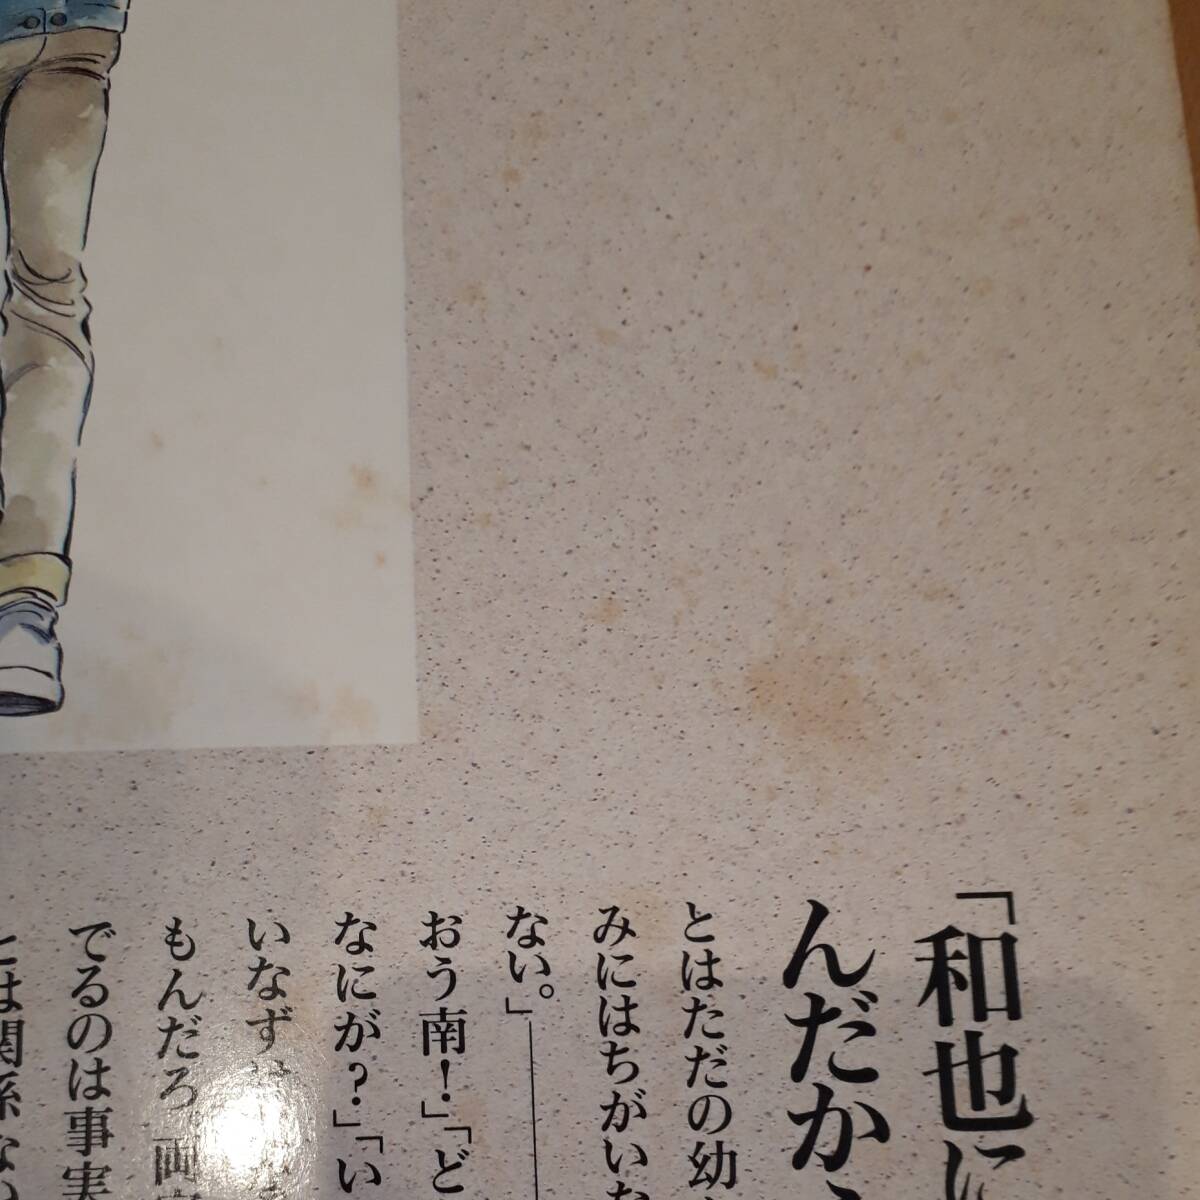 「和也に
んだから
とはただの幼
みにはちがいな
ない。」――
おう南!」「ど
なにが?」「い
いなず
もんだろ 両
でるのは事実
とは関係ない